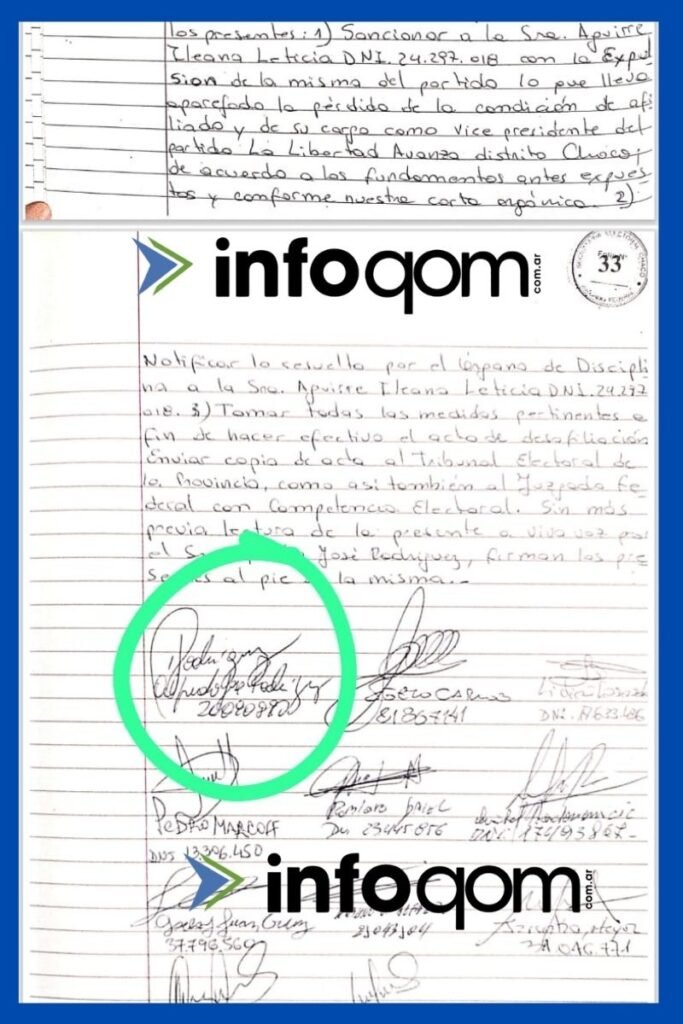 los presentes: 1) Sancionar a la Sra. Aguirre
Ileana Leticia DNI. 24.297.018 con la Expul
sion de la misma del partido lo que lleva
aparejado la pérdida de la condición de afi
liado y de su cargo como vice presidente del
partido La Libertad Avanza distrito Chaco,
de acuerdo a los fundamentos antes expues
tos y conforme nuestra carta orgánica. 2)
infoqom
com.ar
33
Notificar lo resuelto por el Órgano de Discipli
na a la Sra. Aguirre Ileana Leticia DNI. 24.297
018. 3) Tomar todas las medidas pertinentes a
fin de hacer efectivo el acto de desafiliación
Enviar copia de acta al Tribunal Electoral de
la Provincia, como asi también al Juzgado Fe
deral con Competencia Electoral. Sin más
previa lectura de la presente a viva voz por
el José Rodriguez, firman los pre
al pie la misma.-
Rodriguez
Rodriguez
31867141
DNI.
PEDRO MARCOFF
DNI 13.396.450
23445856
infoqom
com.ar
37.796.560